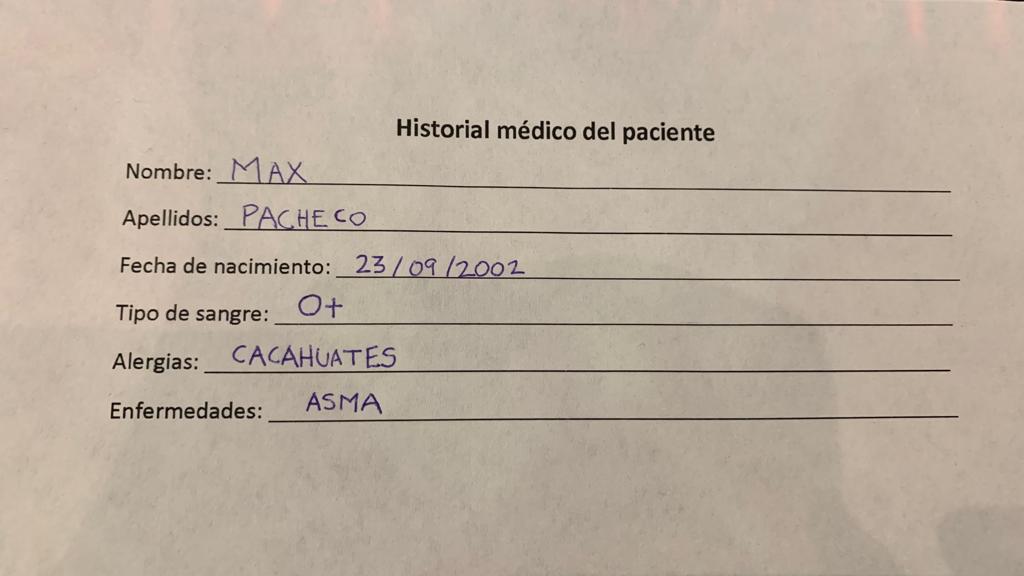 Historial médico del paciente
Nombre: MAX
Apellidos: PACHECO
Fecha de nacimiento: 23/09/2002
Tipo de sangre: O+
Alergias: CACAHUATES
Enfermedades: ASMA